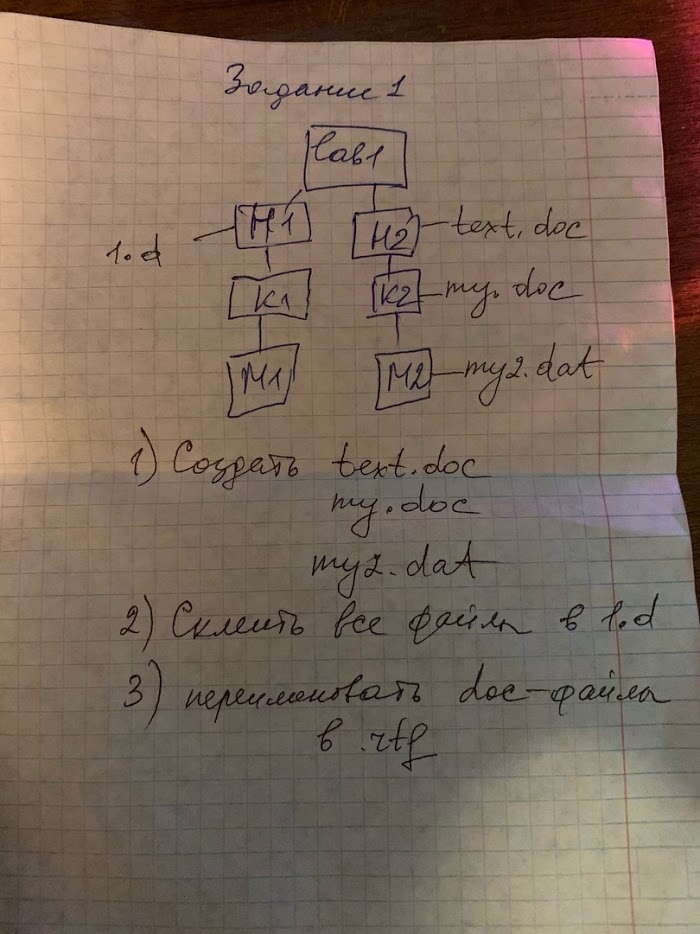 Задание 1
lab1
H1
H2
text.doc
1.d
K1
K2
my.doc
M1
M2
my2.dat
1) Создать text.doc
my.doc
my2.dat
2) Склеить все файлы в 1.d
3) переименовать doc-файлы
в .rtf